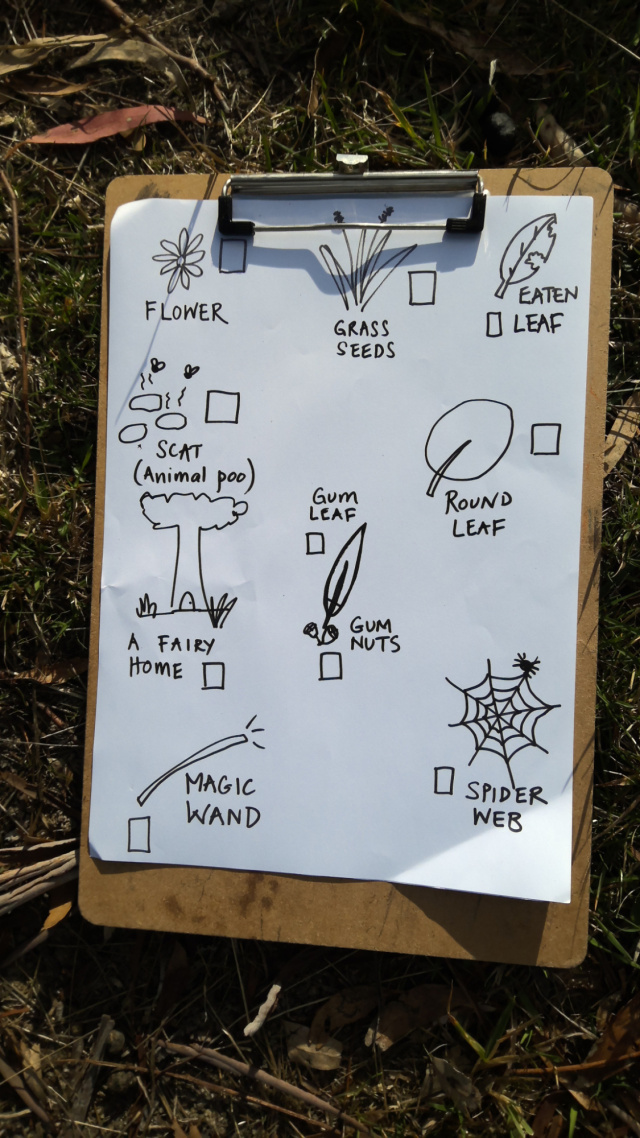 FLOWER
GRASS
SEEDS
EATEN
LEAF
SCAT
(Animal poo)
ROUND
LEAF
GUM
LEAF
GUM
NUTS
A FAIRY
HOME
MAGIC
WAND
SPIDER
WEB